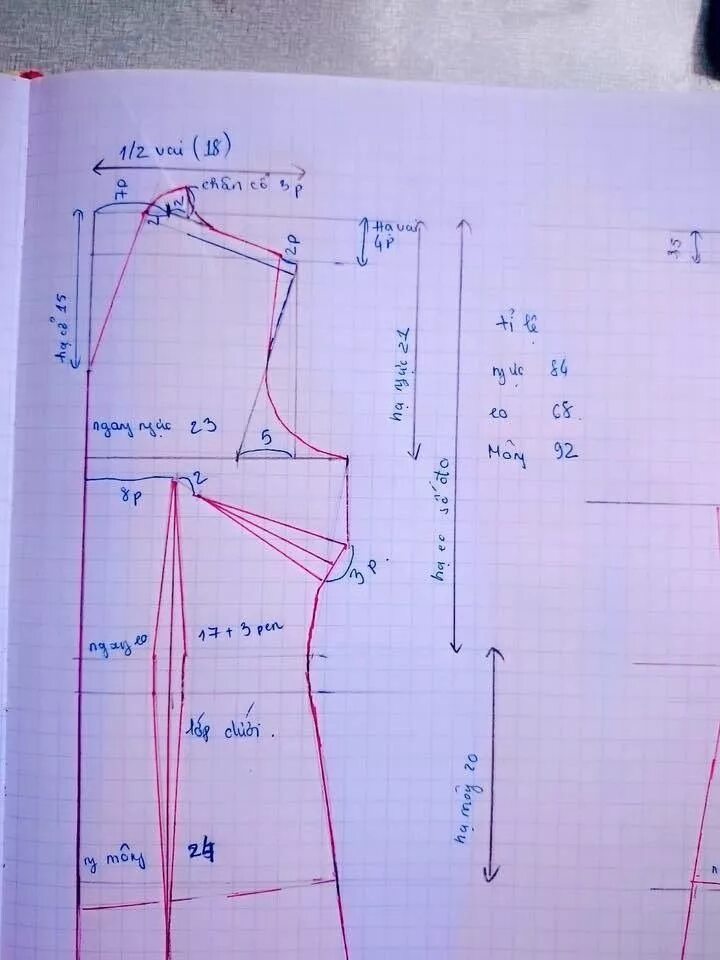 1/2 vai (18)
7p
chân cổ 3p
2
2
2p
Hạ vai
4p
35
hạ cổ 15
hạ ngực 21
tỉ lệ
ngực 84
eo 68.
Mông 92
ngang ngực 23
5
8p
2
hạ eo số đo
3p.
17 + 3 pen
ngang eo
lớp dưới.
hạ mông 20
n mông 24